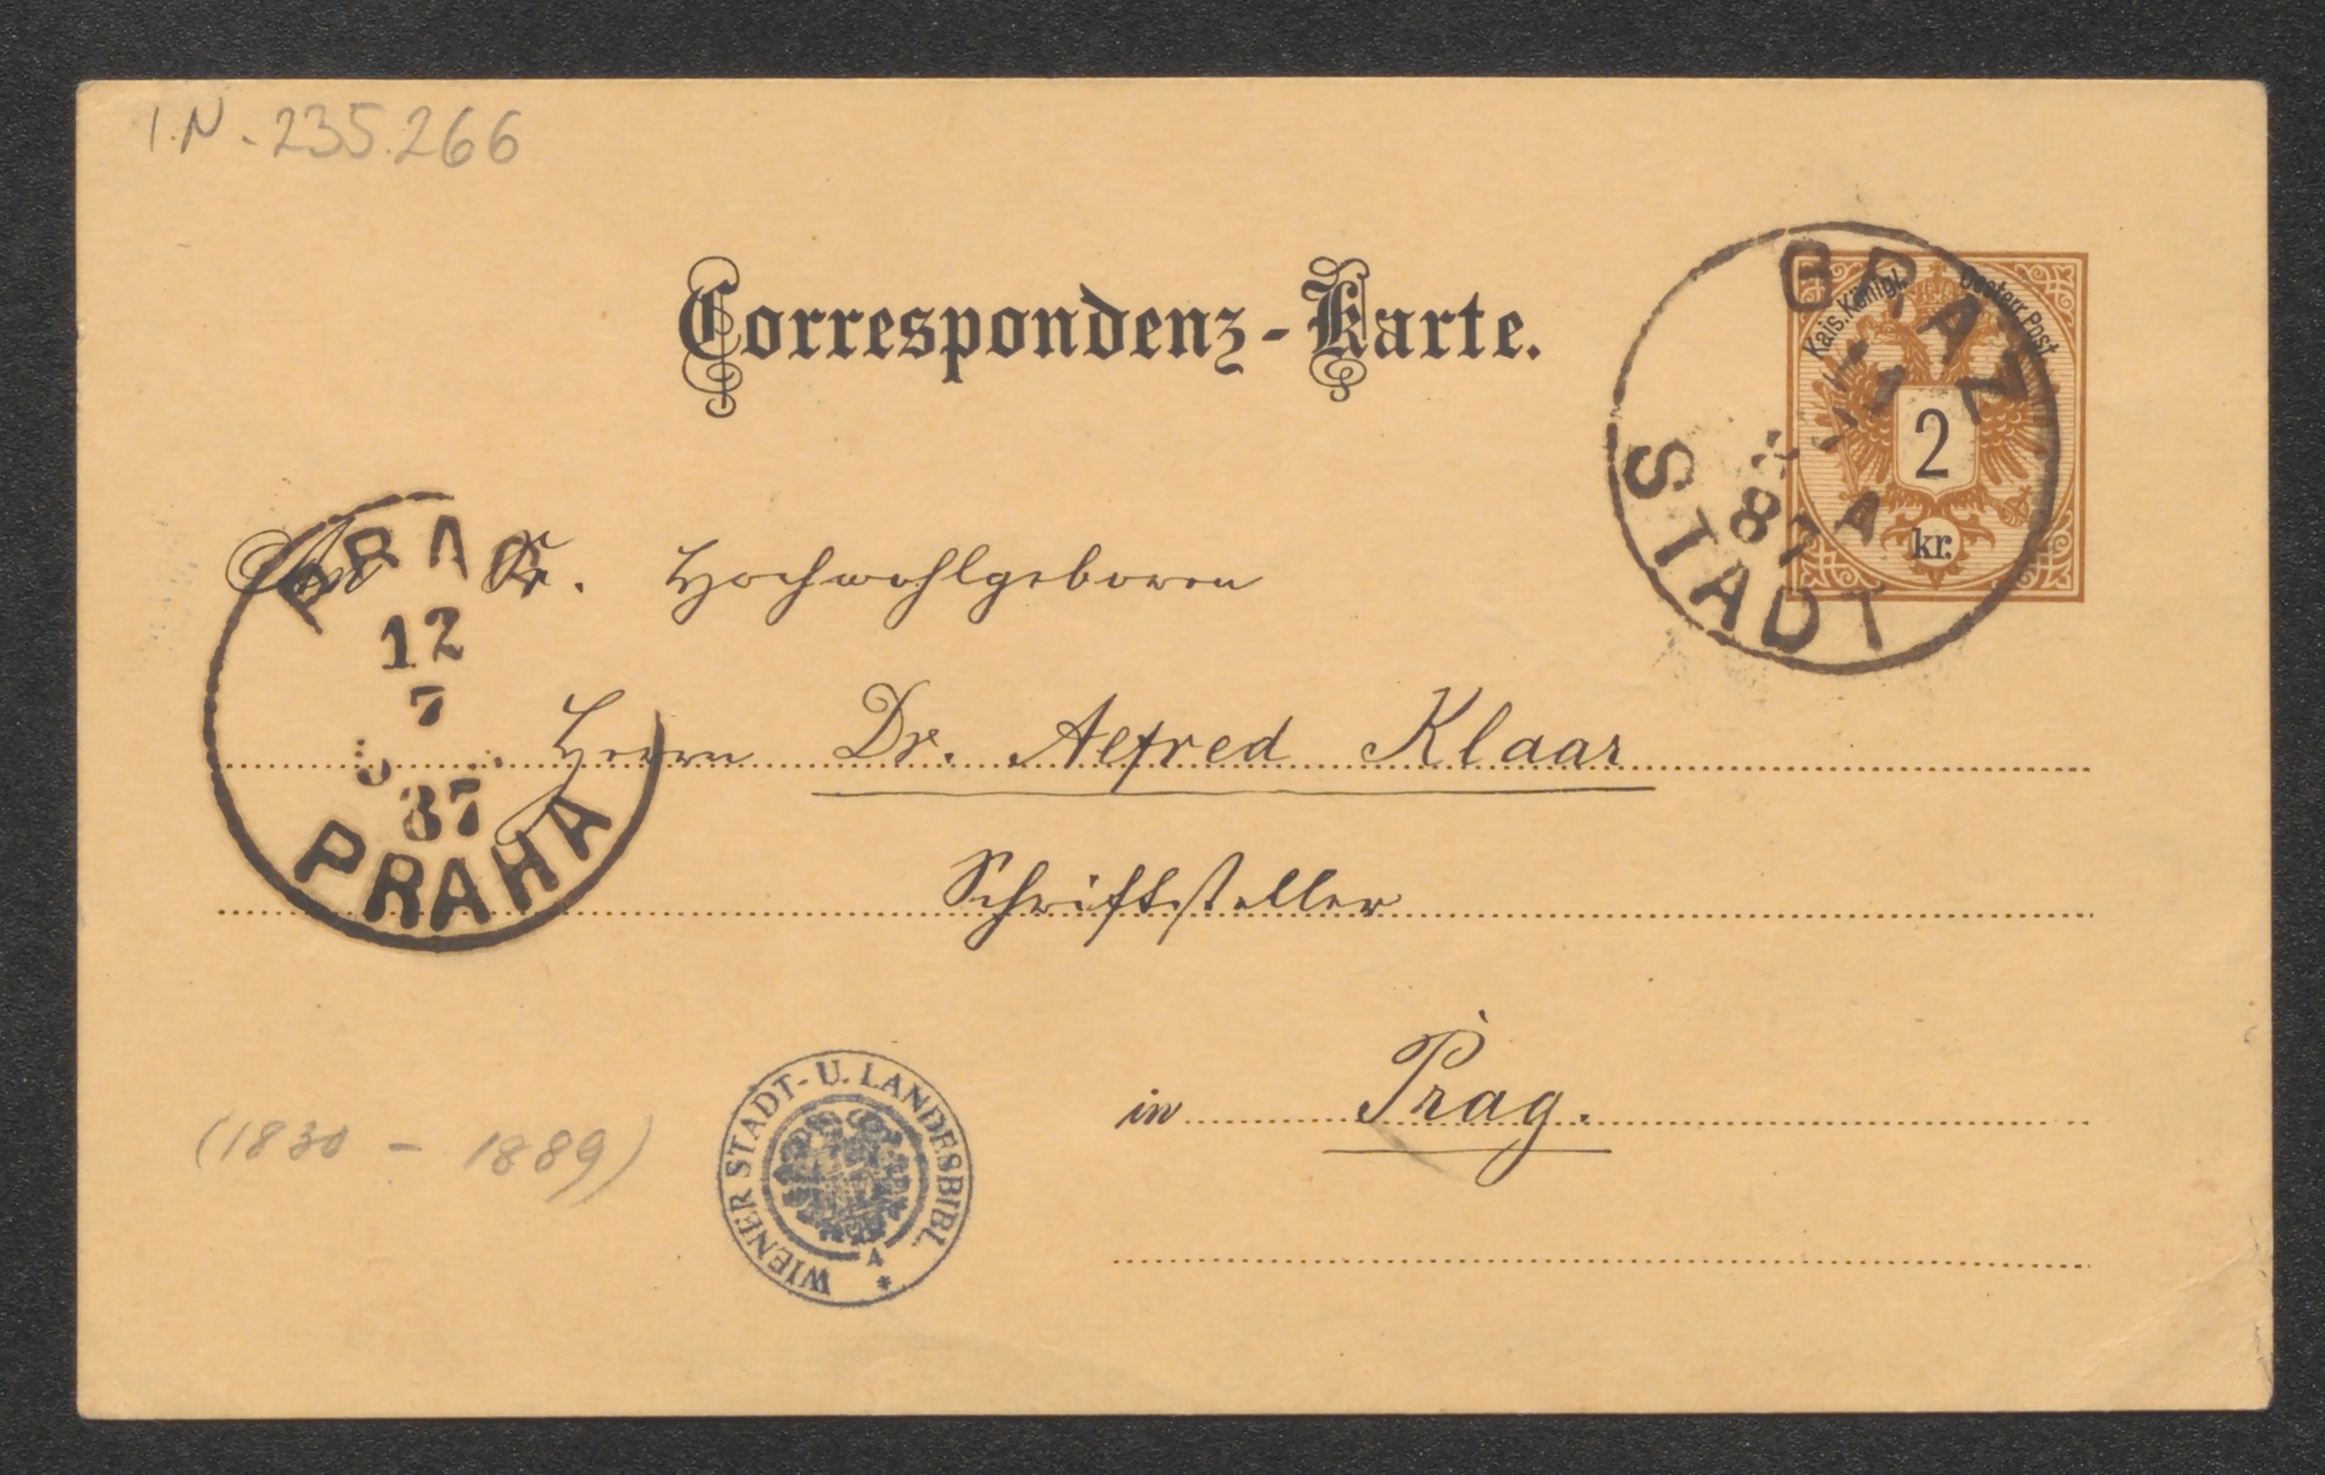 I.N. 235.266
Correspondenz-Karte.
Kais. Königl. Oesterr. Post
2
kr.
GRAZ
STADT
11
7
87
A
PRAG
12
7
87
PRAHA
An Sr. Hochwohlgeboren
Herrn Dr. Alfred Klaar
Schriftsteller
in Prag.
(1830 - 1889)
WIENER STADT- U. LANDESBIBL. *